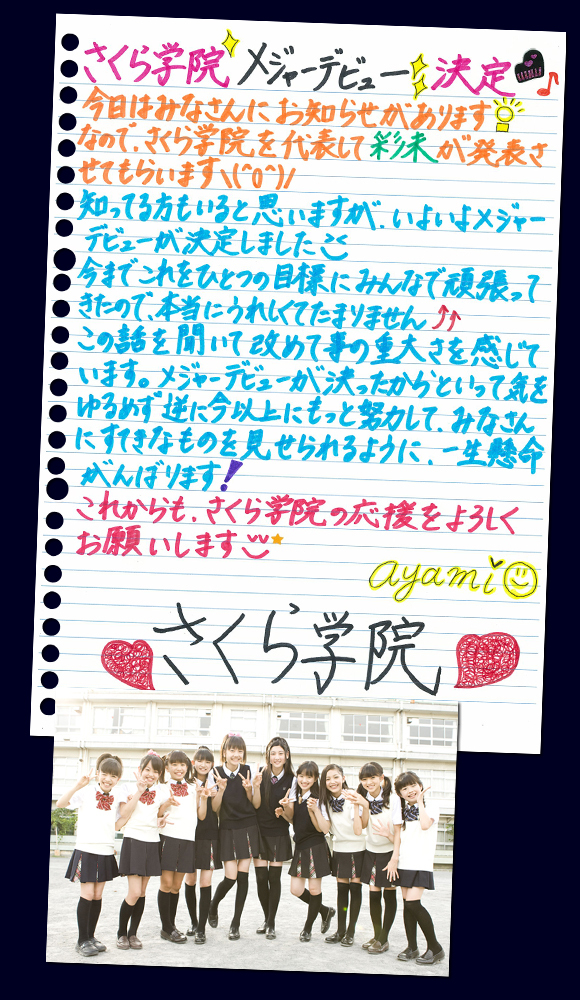 さくら学院 メジャーデビュー 決定
今日はみなさんにお知らせがあります
なので、さくら学院を代表して彩未が発表さ
せてもらいます\(^0^)/
知ってる方もいると思いますが、いよいよメジャー
デビューが決定しました
今までこれをひとつの目標にみんなで頑張って
きたので、本当にうれしくてたまりません
この話を聞いて改めて事の重大さを感じて
います。メジャーデビューが決ったからといって気を
ゆるめず逆に今以上にもっと努力して、みなさん
にすてきなものを見せられるように、一生懸命
がんばります!
これからも、さくら学院の応援をよろしく
お願いします
ayami
さくら学院